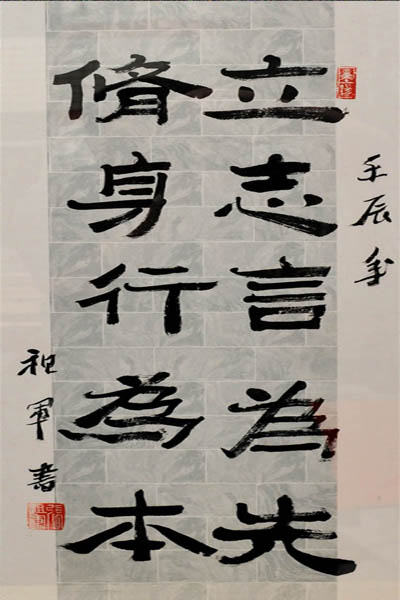 壬辰年
立志言為先
脩身行為本
祖軍書